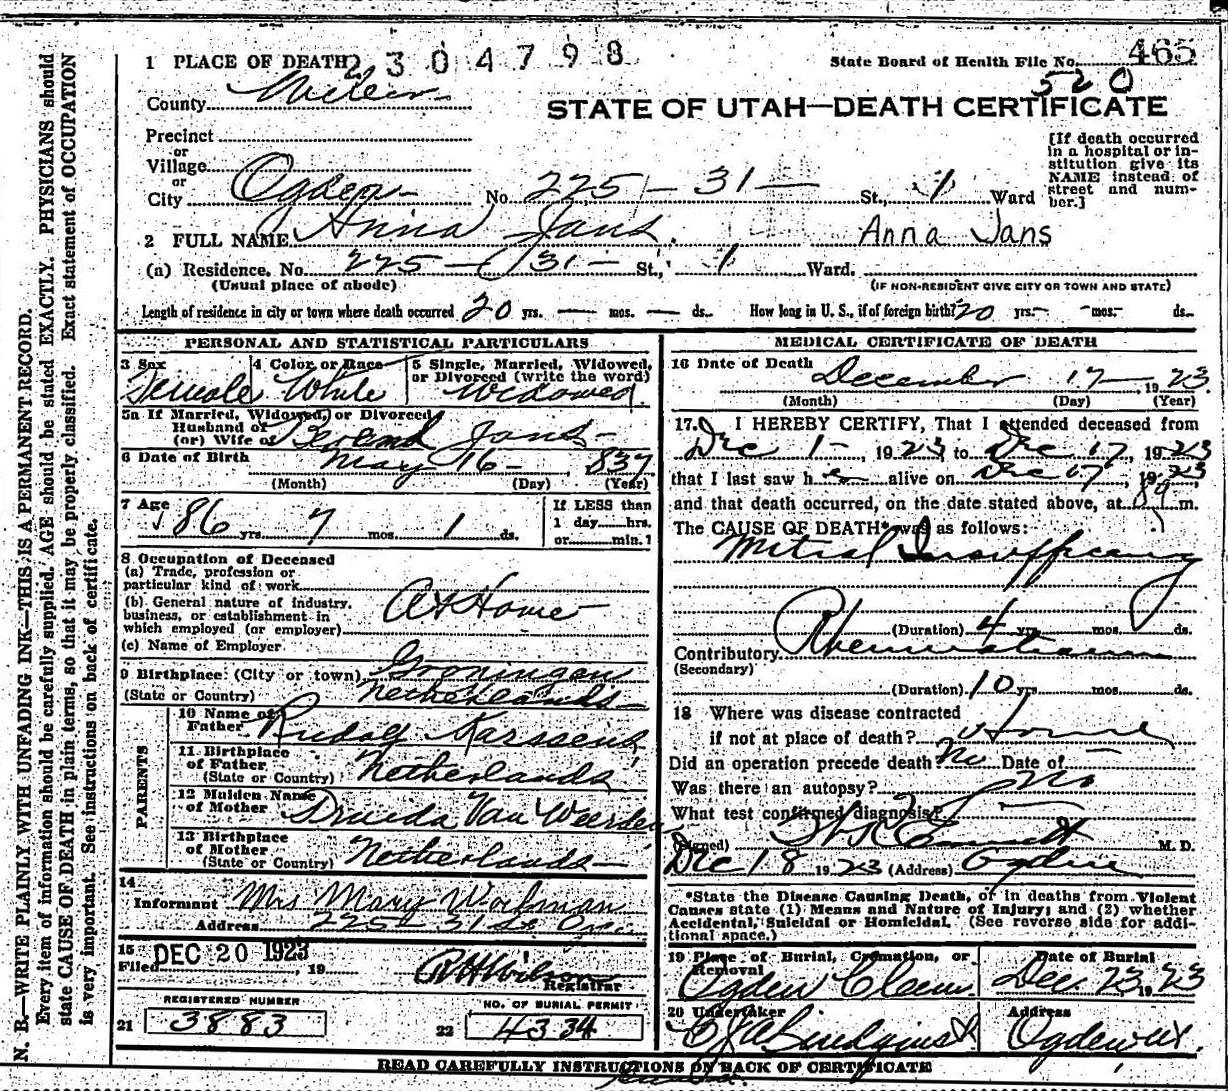 1 PLACE OF DEATH 2 3 0 4 7 9 8
State Board of Health File No. 465
520
County Weber
STATE OF UTAH—DEATH CERTIFICATE
Precinct
or
Village
or
City Ogden No 225 - 31 - St., 1 Ward
[If death occurred
in a hospital or in-
stitution give its
NAME instead of
street and num-
ber.]
2 FULL NAME Anna Jans. Anna Jans
(a) Residence. No. 225 - 31 - St., 1 Ward.
(Usual place of abode) (IF NON-RESIDENT GIVE CITY OR TOWN AND STATE)
Length of residence in city or town where death occurred 20 yrs. — mos. — ds. How long in U. S., if of foreign birth? 20 yrs. - mos. ds.
PERSONAL AND STATISTICAL PARTICULARS
3 Sex Female
4 Color or Race White
5 Single, Married, Widowed,
or Divorced (write the word)
Widowed
5a If Married, Widowed, or Divorced
Husband of
(or) Wife of Berend Jans-
6 Date of Birth May 16 - 1837
(Month) (Day) (Year)
7 Age 86 yrs. 7 mos. 1 ds.
If LESS than
1 day....hrs.
or....min.?
8 Occupation of Deceased
(a) Trade, profession or
particular kind of work
(b) General nature of industry,
business, or establishment in
which employed (or employer)
At Home
(c) Name of Employer
9 Birthplace (City or town) Groningen
(State or Country) Netherlands
PARENTS
10 Name of
Father Rudolf Karssens
11 Birthplace
of Father
(State or Country) Netherlands
12 Maiden Name
of Mother Van Weerden
13 Birthplace
of Mother
(State or Country) Netherlands
14
Informant Mrs Mary Workman
Address 225 - 31 st
15
Filed DEC 20 1923, 19 R H Wilson
Registrar
REGISTERED NUMBER
21 3883
NO. OF BURIAL PERMIT
22 4334
MEDICAL CERTIFICATE OF DEATH
16 Date of Death December 17 - 1923
(Month) (Day) (Year)
17. I HEREBY CERTIFY, That I attended deceased from
Dec 1 -, 1923 to Dec 17, 1923
that I last saw her alive on Dec 17, 1923
and that death occurred, on the date stated above, at m.
The CAUSE OF DEATH* was as follows:
Mitral Insufficiency
(Duration) 4 yrs mos. ds.
Contributory Rheumatism
(Secondary)
(Duration) 10 yrs mos. ds.
18 Where was disease contracted
if not at place of death? Home
Did an operation precede death? No Date of —
Was there an autopsy? no
What test confirmed diagnosis?
(Signed) Emmett M. D.
Dec 18 1923 (Address) Ogden
*State the Disease Causing Death, or in deaths from Violent
Causes state (1) Means and Nature of Injury; and (2) whether
Accidental, Suicidal or Homicidal. (See reverse side for addi-
tional space.)
19 Place of Burial, Cremation, or
Removal
Ogden Cem.
Date of Burial
Dec 23, 1923
20 Undertaker
Address
Ogden, Ut.
READ CAREFULLY INSTRUCTIONS ON BACK OF CERTIFICATE
N. B.—WRITE PLAINLY WITH UNFADING INK—THIS IS A PERMANENT RECORD.
Every item of information should be carefully supplied. AGE should be stated EXACTLY. PHYSICIANS should
state CAUSE OF DEATH in plain terms, so that it may be properly classified. Exact statement of OCCUPATION
is very important. See instructions on back of certificate.